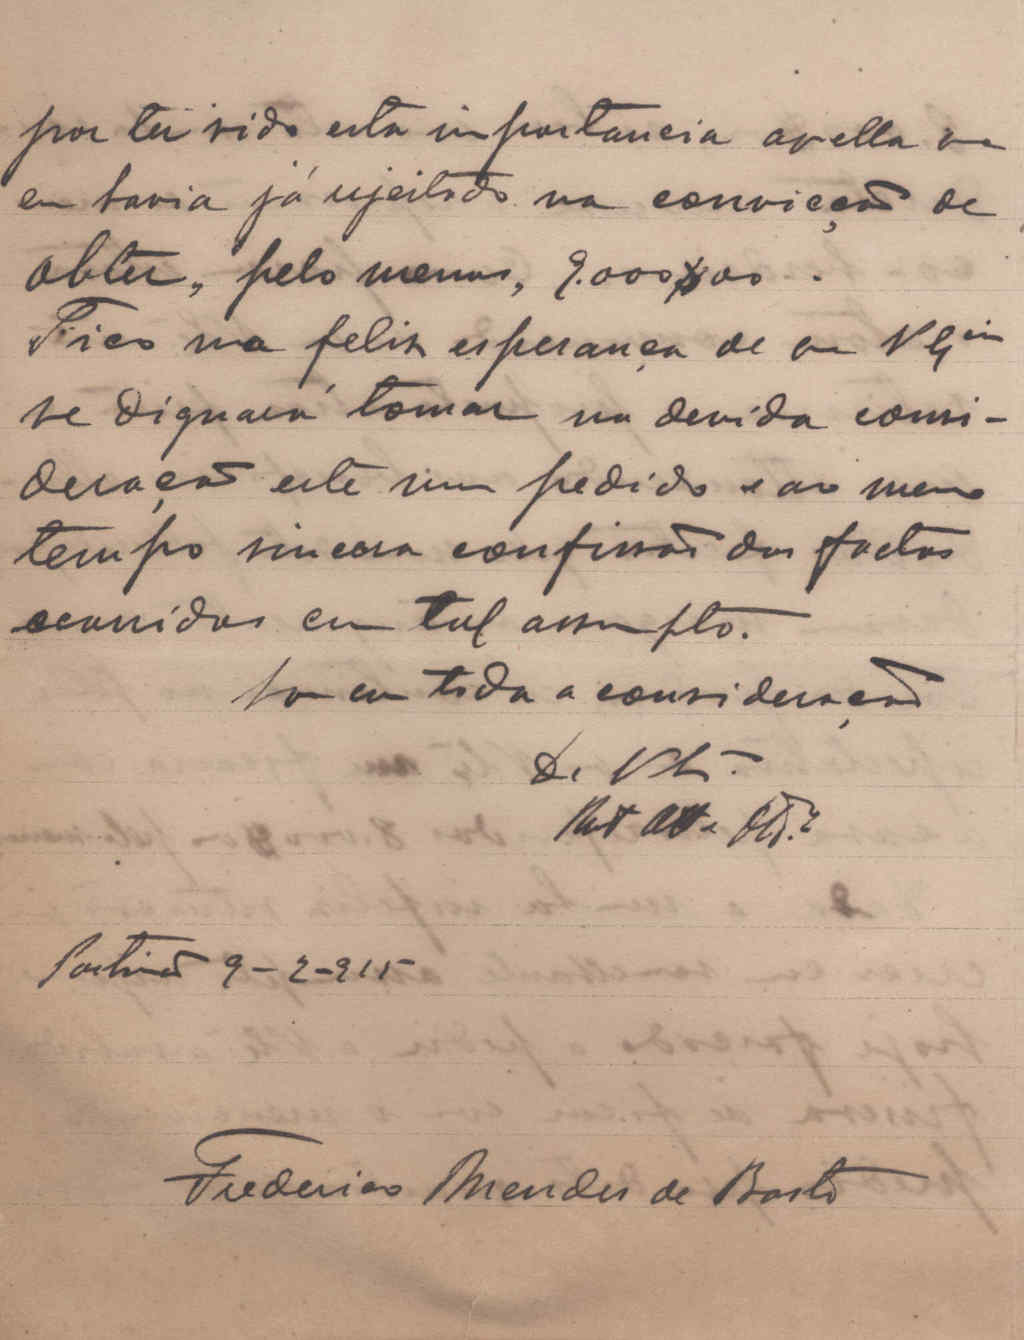 por ter sido esta importancia aquella que
eu havia já rejeitado na convicção de
obter, pelo menos, 9.000$00.
Fico na feliz esperança de que V Ex.cia
se dignará tomar na devida consi-
deração este meu pedido e ao mesmo
tempo sincera confissão dos factos
ocorridos em tal assumpto.
Sou com toda a consideração
De V. Ex.
Portimão 9-2-915
Frederico Mendes de Basto